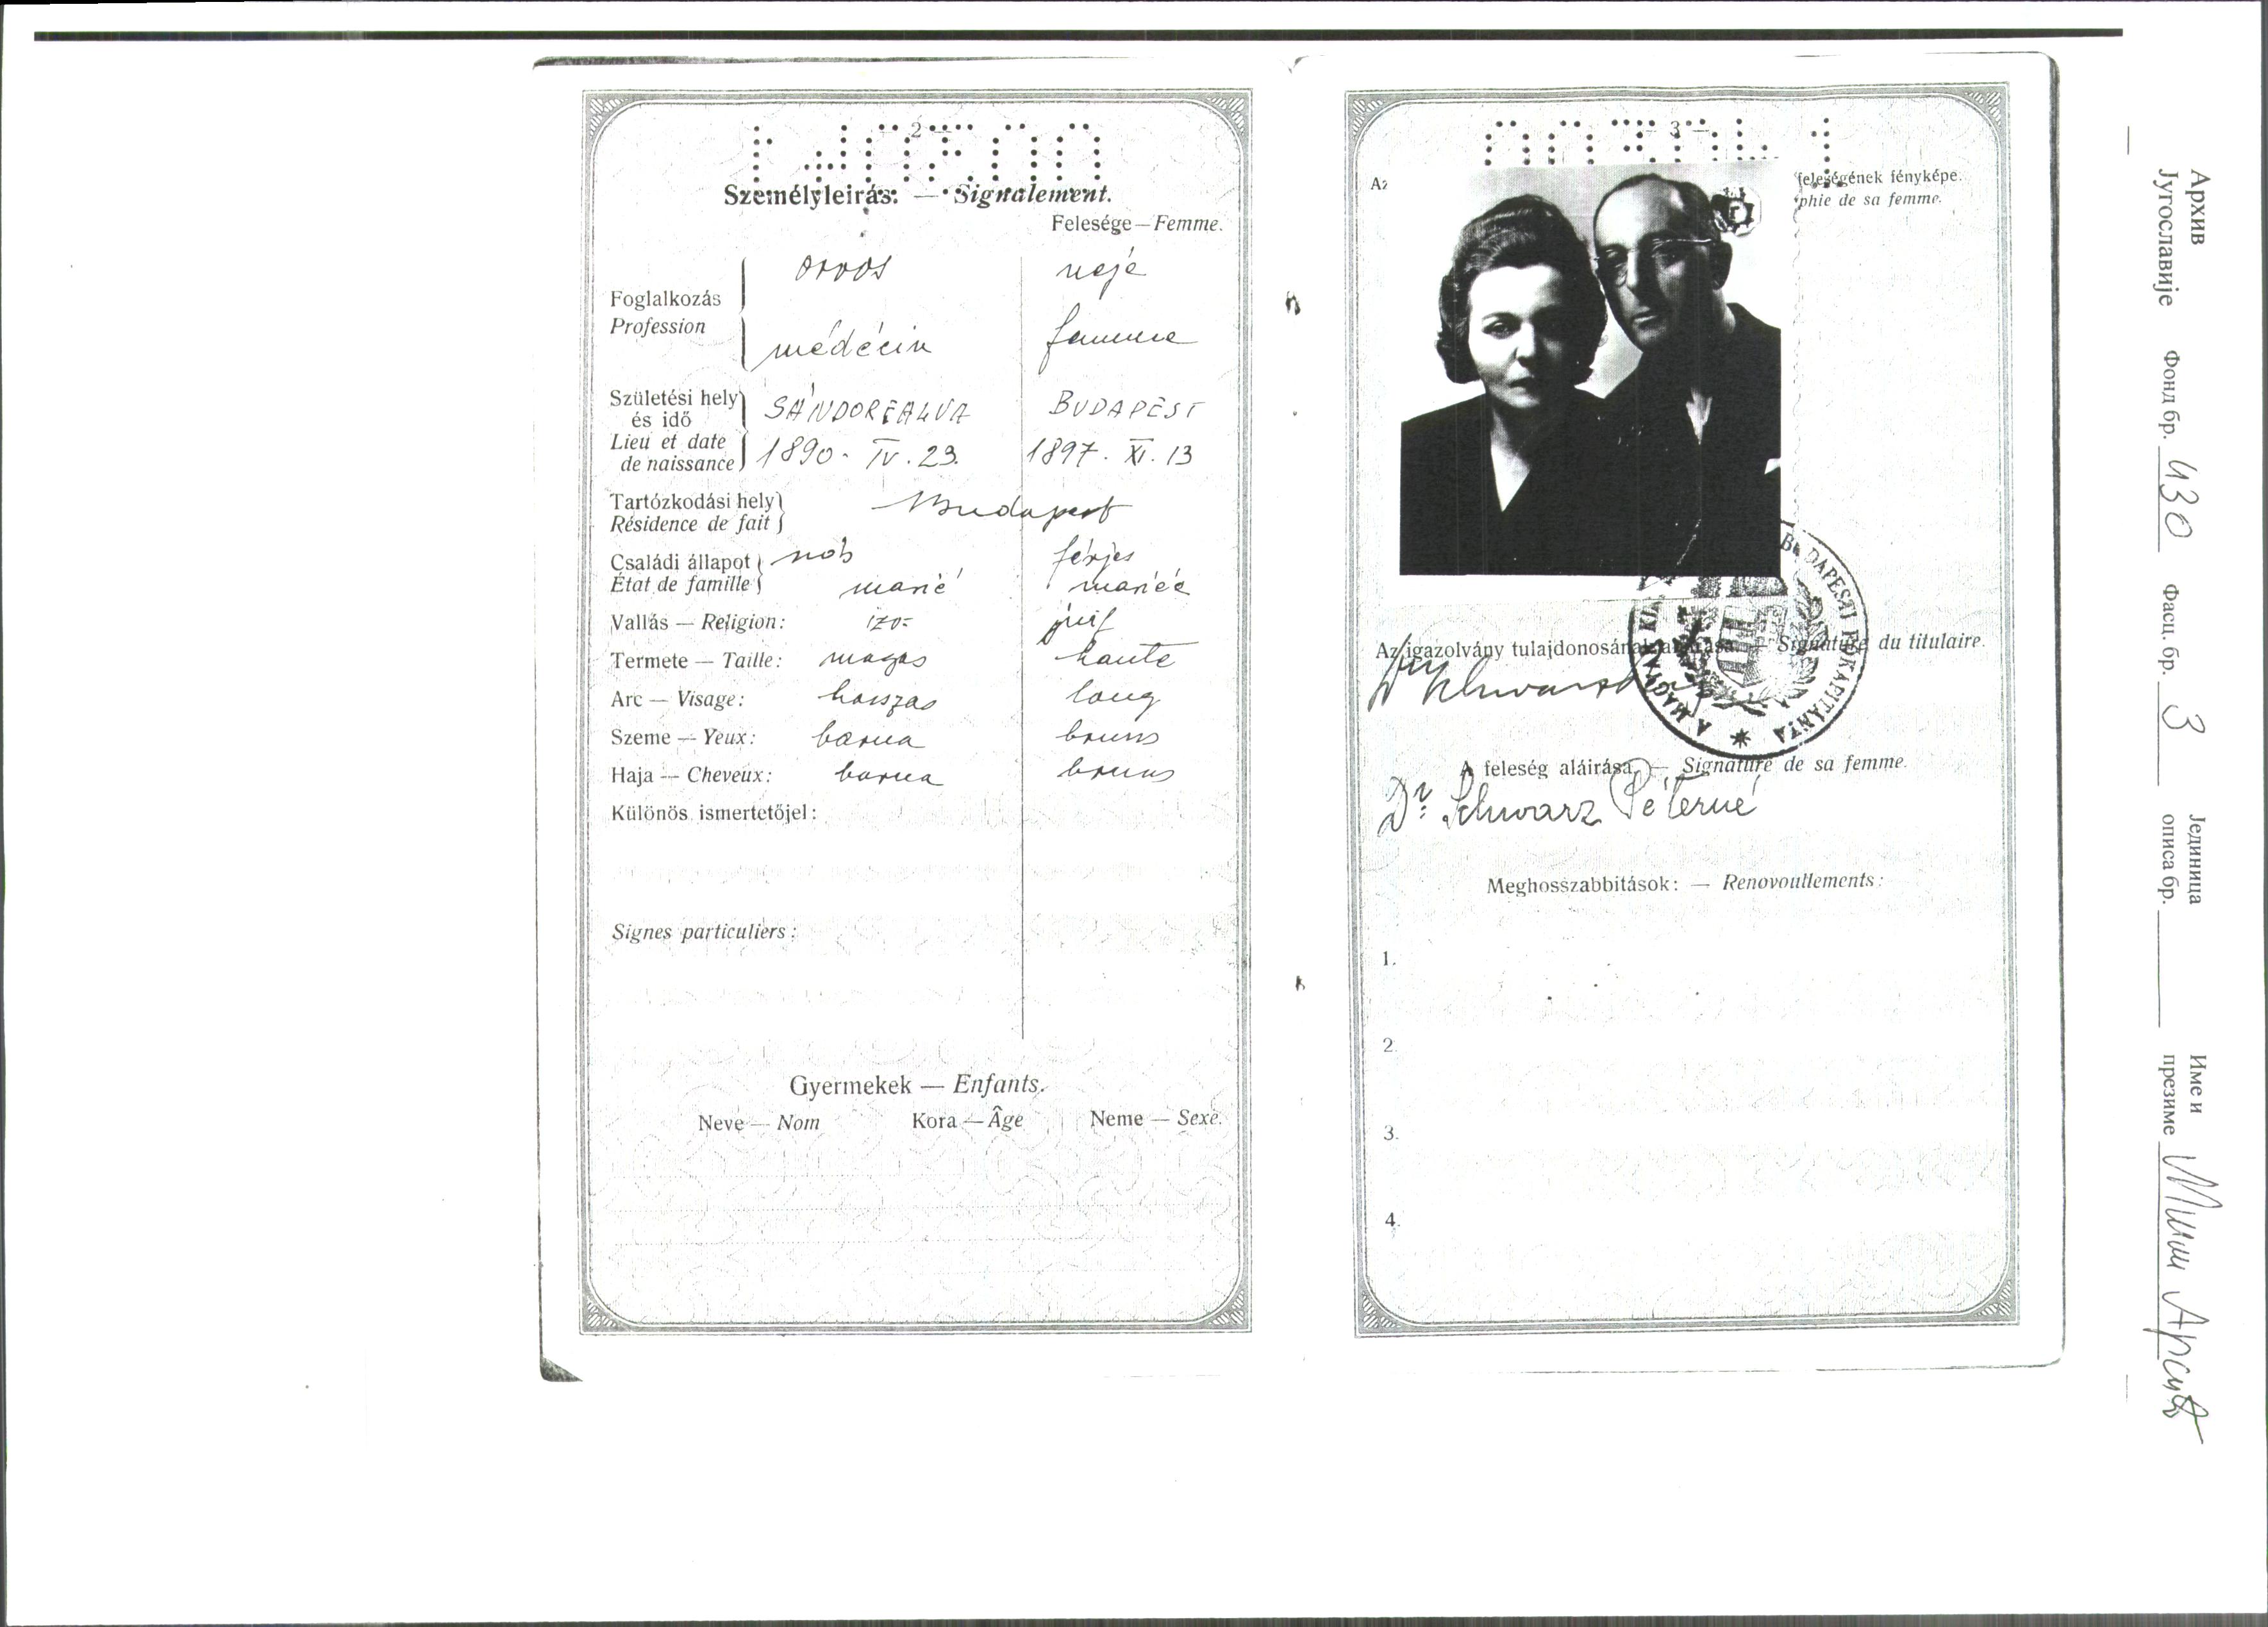 — 2 —
Személyleirás: — Signalement.
Felesége — Femme.
orvos neje
Foglalkozás
Profession
médécin femme
Születési hely
és idő
Lieu et date
de naissance
SÁNDORFALVA BUDAPEST
1890. IV. 23. 1897. XI. 13
Tartózkodási hely
Résidence de fait
Budapest
Családi állapot nős férjes
État de famille marié mariée
Vallás — Religion: izr. juif
Termete — Taille: magas haute
Arc — Visage: hosszas long
Szeme — Yeux: barna bruns
Haja — Cheveux: barna bruns
Különös ismertetőjel:
Signes particuliers:
Gyermekek — Enfants.
Neve — Nom Kora — Âge Neme — Sexe.
— 3 —
Az feleségének fényképe.
phie de sa femme.
A MAGYAR KIR. BUDAPESTI FŐKAPITÁNYA
Az igazolvány tulajdonosának aláirása. — Signature du titulaire.
Dr Schwarz
A feleség aláirása. — Signature de sa femme.
Dr. Schwarz Péterné
Meghosszabbitások: — Renovoutlements:
1.
2.
3.
4.
Архив
Југославије
Фонд бр. 430
Фасц. бр. 3
Јединица
описа бр.
Име и
презиме